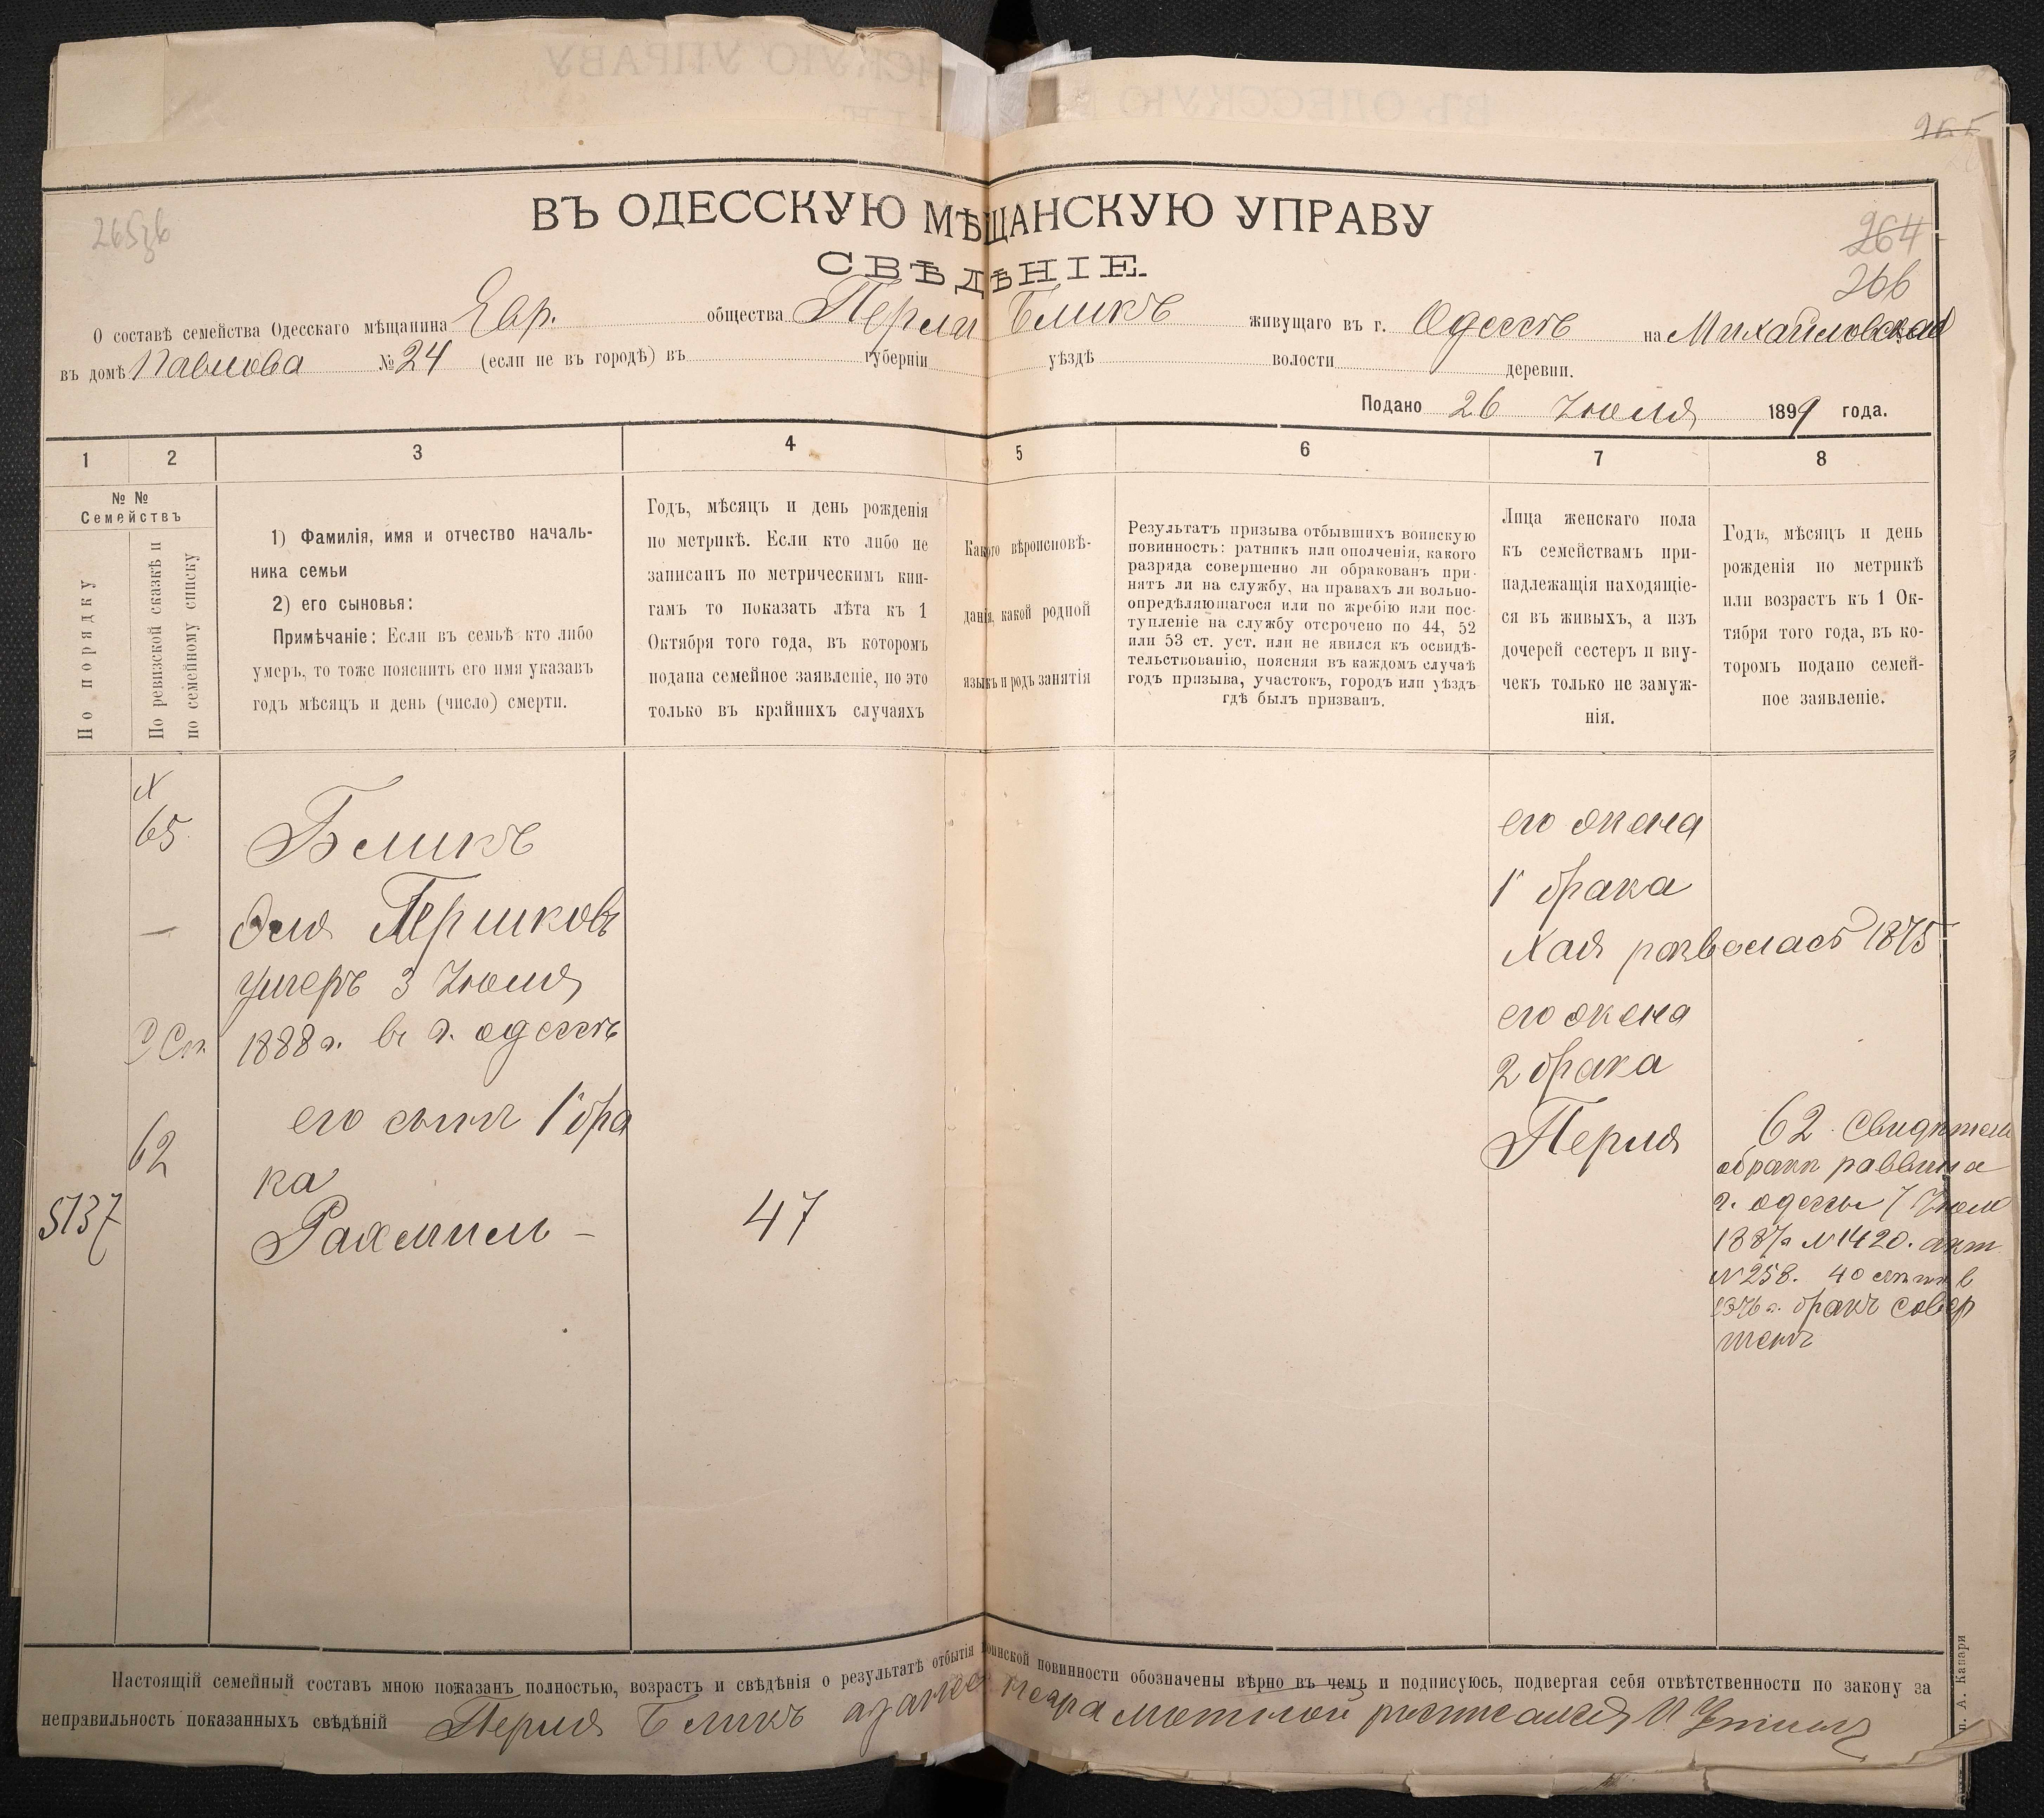 265 зб
264
266
ВЪ ОДЕССКУЮ МѢЩАНСКУЮ УПРАВУ
СВѢДѢНІЕ.
О составѣ семейства Одесскаго мѣщанина Евр. общества Перли Бликъ живущаго въ г. Одессѣ на Михайловской
въ домѣ Павлова № 24 (если не въ городѣ) въ губерніи уѣздѣ волости деревни.
Подано 26 Іюля 1899 года.
1 2 3 4 5 6 7 8
№ №
Семействъ
По порядку
По ревизской сказкѣ и
по семейному списку
1) Фамилія, имя и отчество началь-
ника семьи
2) его сыновья:
Примѣчаніе: Если въ семьѣ кто либо
умеръ, то тоже пояснить его имя указавъ
годъ мѣсяцъ и день (число) смерти.
Годъ, мѣсяцъ и день рожденія
по метрикѣ. Если кто либо не
записанъ по метрическимъ кни-
гамъ то показать лѣта къ 1
Октября того года, въ которомъ
подана семейное заявленіе, но это
только въ крайнихъ случаяхъ
Какого вѣроисповѣ-
данія, какой родной
языкъ и родъ занятія
Результатъ призыва отбывшихъ воинскую
повинность: ратникъ или ополченія, какого
разряда совершенно ли обракованъ при-
нятъ ли на службу, на правахъ ли вольно-
опредѣляющагося или по жребію или пос-
тупленіе на службу отсрочено по 44, 52
или 53 ст. уст. или не явился къ освидѣ-
тельствованію, поясняя въ каждомъ случаѣ
годъ призыва, участокъ, городъ или уѣздъ
гдѣ былъ призванъ.
Лица женскаго пола
къ семействамъ при-
надлежащія находящіе-
ся въ живыхъ, а изъ
дочерей сестеръ и вну-
чекъ только не замуж-
нія.
Годъ, мѣсяцъ и день
рожденія по метрикѣ
или возрастъ къ 1 Ок-
тября того года, въ ко-
торомъ подано семей-
ное заявленіе.
65
Бликъ
— Эля Гершковъ
умеръ 3 Іюля
1888 г. въ г. одессѣ
62
его сынъ 1 бра
ка
5137 Рахмиль — 47
его жена
1 брака
Хая развелась 1875
его жена
2 брака
Перля
62 Свидѣтел
о бракѣ раввина
г. одессы 7 Іюля
1887 г № 1420. акт
№ 258. 40
1876 г. бракъ совер
шенъ
Настоящій семейный составъ мною показанъ полностью, возрастъ и свѣдѣнія о результатѣ отбытія воинской повинности обозначены вѣрно въ чемъ и подписуюсь, подвергая себя отвѣтственности по закону за
неправильность показанныхъ свѣдѣній Перля Бликъ а за нее неграмотной росписался
п. А. Капари